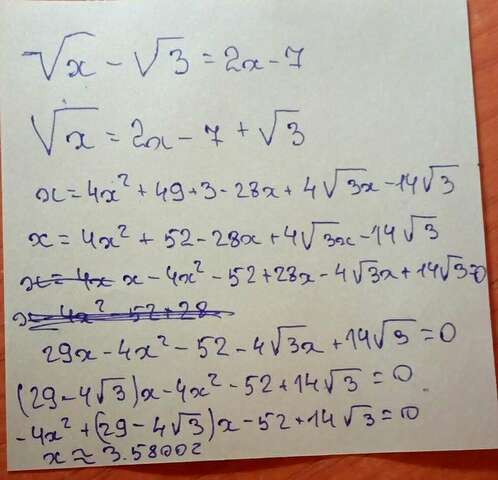 √x - √3 = 2x - 7
√x = 2x - 7 + √3
x = 4x² + 49 + 3 - 28x + 4√3x - 14√3
x = 4x² + 52 - 28x + 4√3x - 14√3
x = 4x x - 4x² - 52 + 28x - 4√3x + 14√3=0
x = 4x² - 52 + 28
29x - 4x² - 52 - 4√3x + 14√3 = 0
(29 - 4√3)x - 4x² - 52 + 14√3 = 0
-4x² + (29 - 4√3)x - 52 + 14√3 = 0
x ≈ 3.58002